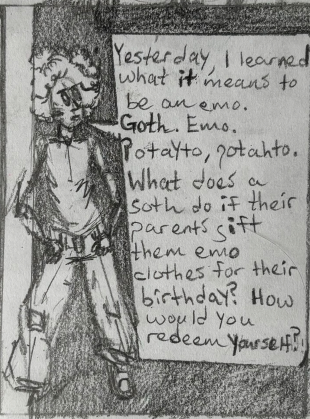 Yesterday, I learned
what it means to
be an emo.
Goth. Emo.
Potayto, potahto.
What does a
goth do if their
parents gift
them emo
clothes for their
birthday? How
would you
redeem yourself?